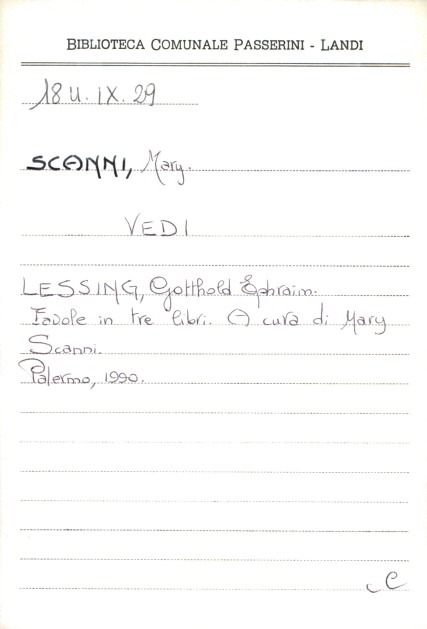 BIBLIOTECA COMUNALE PASSERINI - LANDI
18 U. IX. 29
SCANNI, Mary.
VEDI
LESSING, Gotthold Ephraim.
Favole in tre libri. A cura di Mary
Scanni.
Palermo, 1990.
C